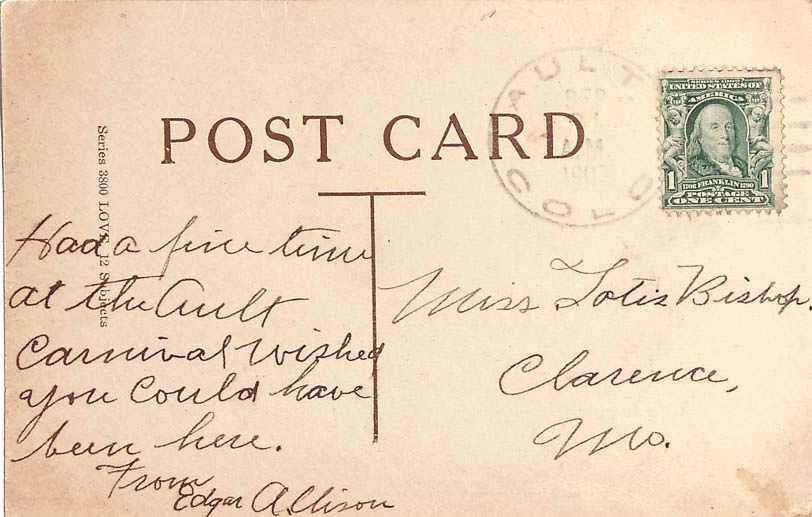 POST CARD
Series 3800 LOVE 12 Subjects
AULT
SEP
A.M
1907
COLO
SERIES 1902
UNITED STATES OF
AMERICA
1706 FRANKLIN 1790
1 1
POSTAGE
ONE CENT
Had a fine time
at the Ault
Carnival Wished
you Could have
been here.
From
Edgar Allison
Miss Lotis Bishop.
Clarence,
Mo.